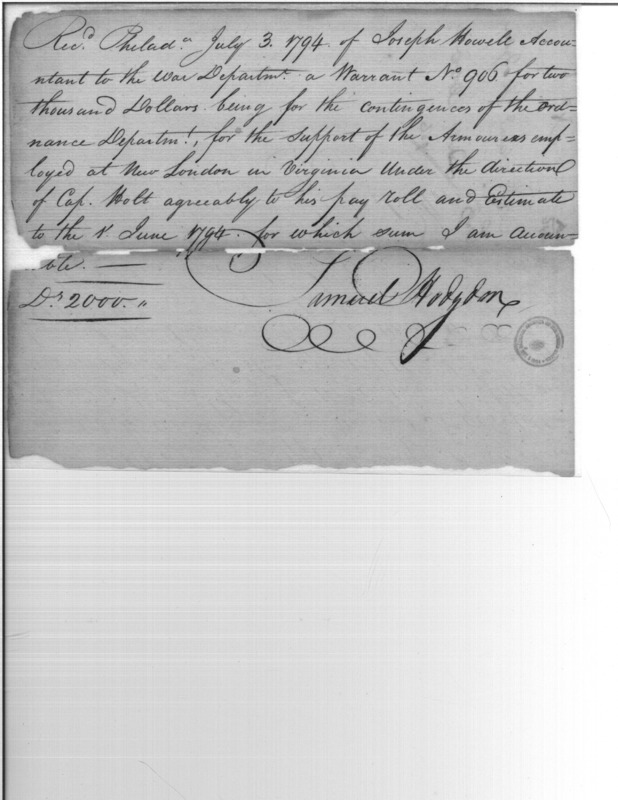 Rec.d Philad.a July 3. 1794. of Joseph Howell Accou-
ntant to the war Departm.t a Warrant No. 906 for two
thousand Dollars being for the contingences of the Ord=
nance Departm.t, for the support of the Armourers emp=
loyed at New London in Virginia Under the direction
of Cap. Holt agreeably to his pay roll and Estimate
to the 1. June 1794. for which sum I am accoun=
table. —
Drs 2000. "
Samuel Hodgdon